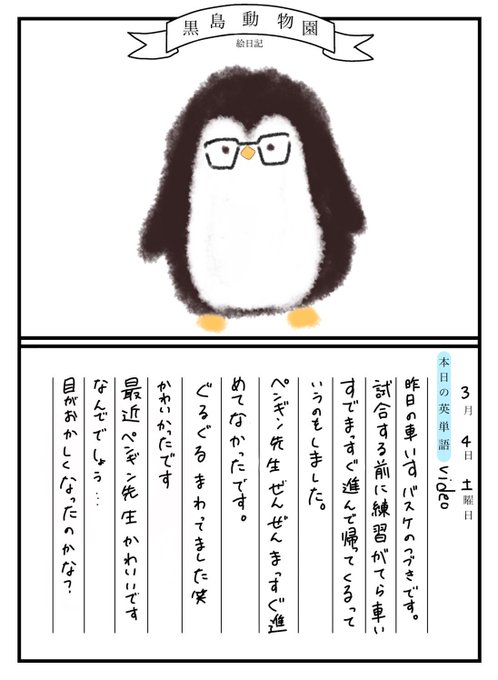 黒島動物園
絵日記
3月4日土曜日
本日の英単語 video
昨日の車いすバスケのつづきです。
試合する前に練習がてら車い
すでまっすぐ進んで帰ってくるって
いうのもしました。
ペンギン先生ぜんぜんまっすぐ進
めてなかったです。
ぐるぐるまわってました笑
かわいかったです
最近ペンギン先生かわいいです
なんででしょう…
目がおかしくなったのかな？